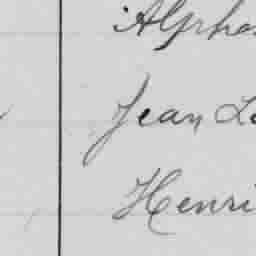 Alphon
Jean Le
Henri